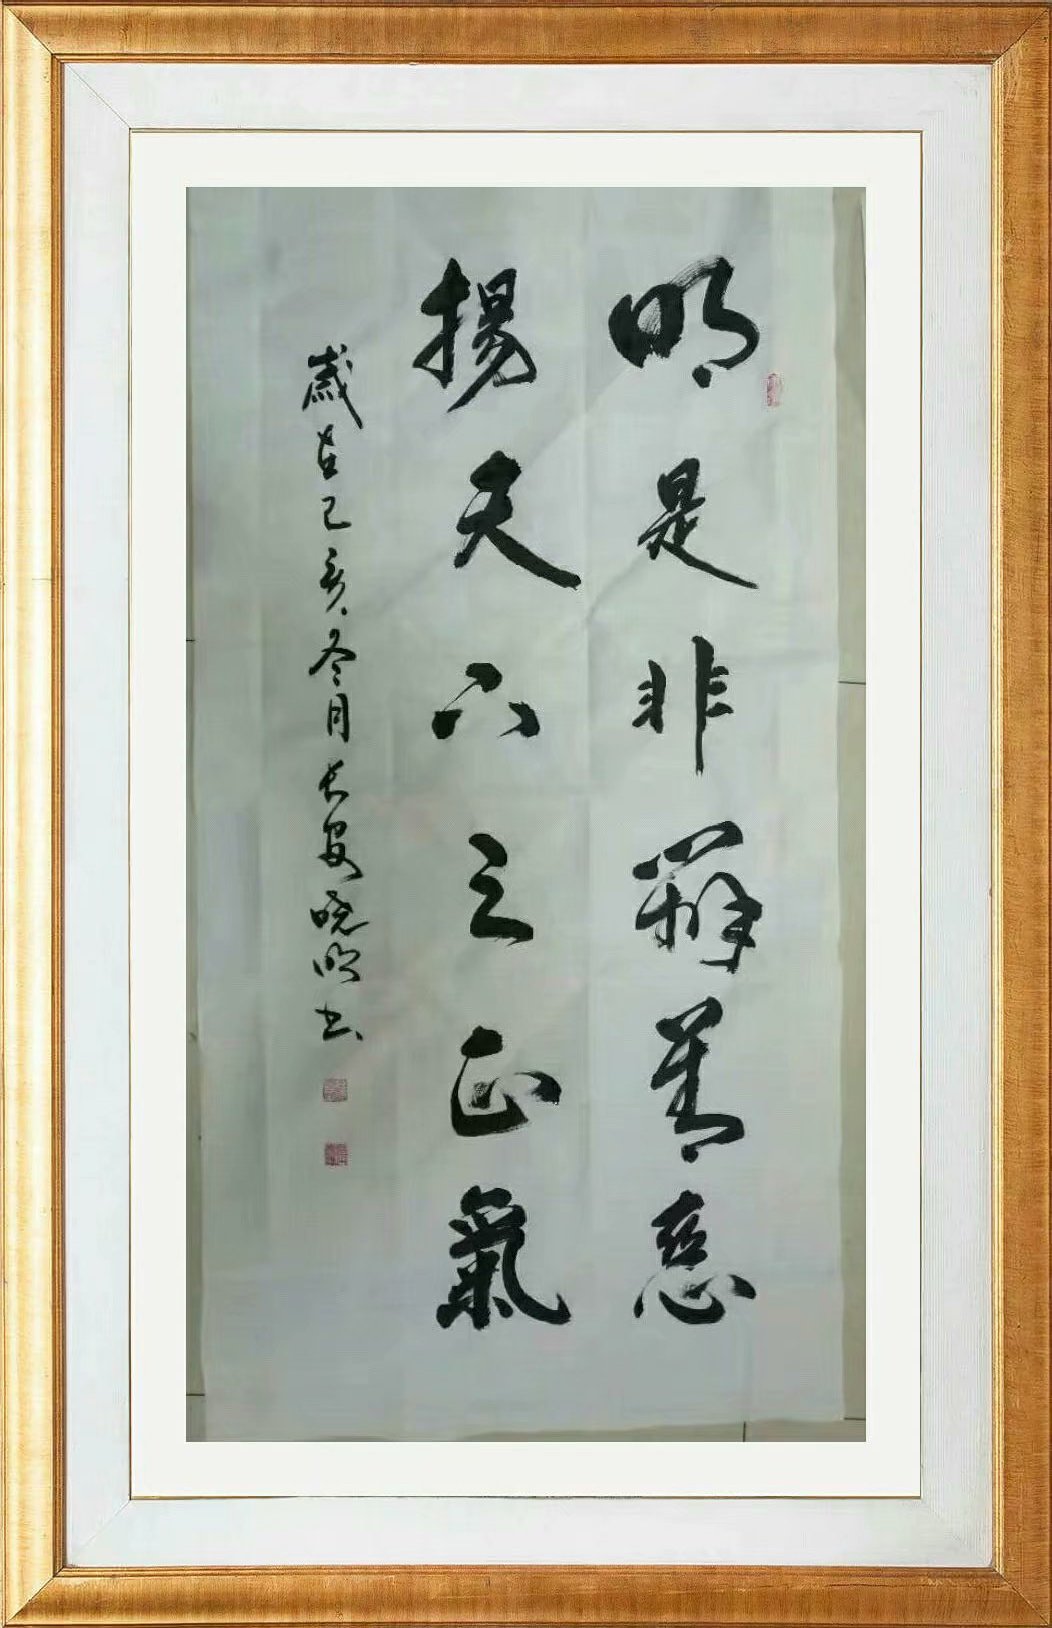 明是非辨善恶
揚天下之正氣
歲在己亥冬月长安晓明书